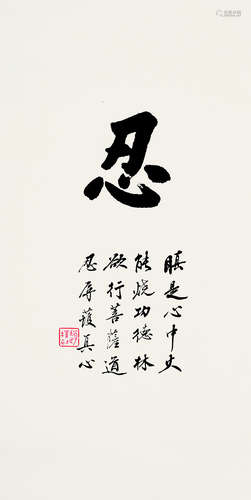 忍
瞋是心中火
能燒功德林
欲行菩薩道
忍辱護真心